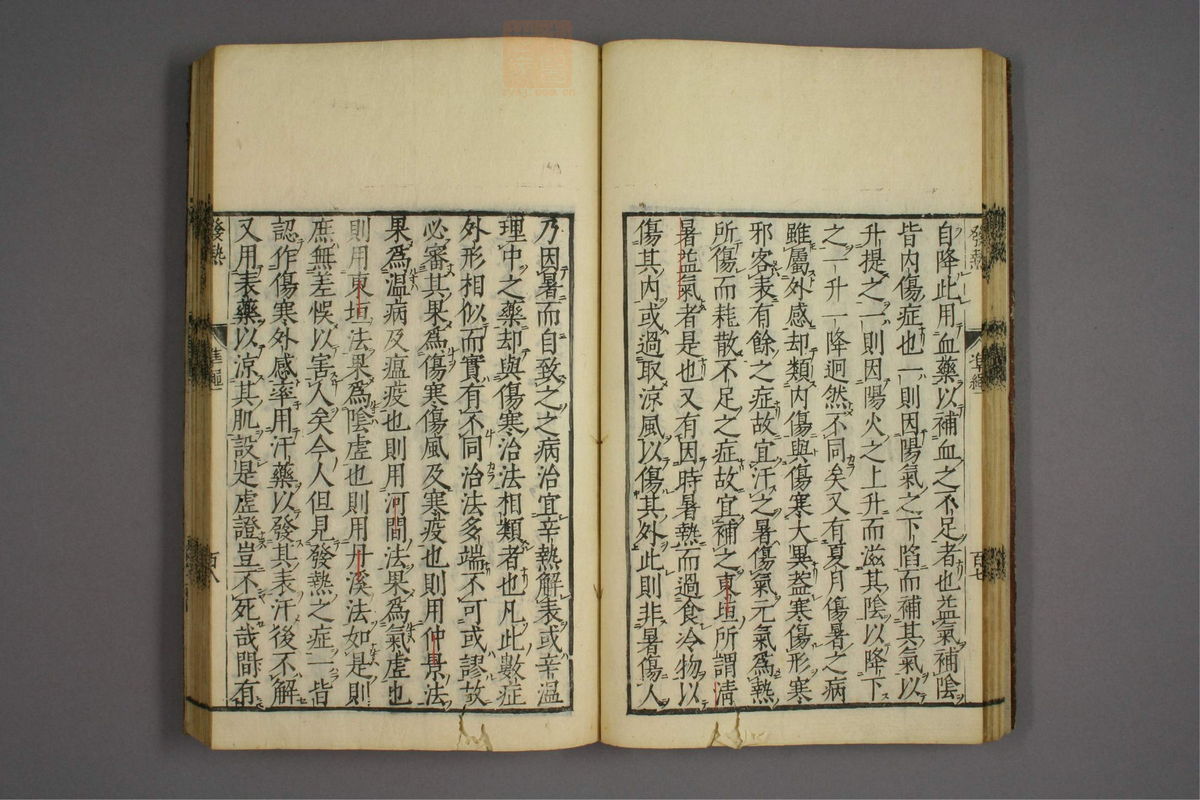 發熱
準繩一
百七
自降此用血藥以補血之不足者也益氣補陰
皆内傷症也一則因陽氣之下陷而補其氣以
升提之一則因陽火之上升而滋其陰以降下
之一升一降迥然不同矣又有夏月傷暑之病
雖屬外感却類内傷與傷寒大異蓋寒傷形寒
邪客表有餘之症故宜汗之暑傷氣元氣爲熱
所傷而耗散不足之症故宜補之東垣所謂清
暑益氣者是也又有因時暑熱而過食冷物以
傷其内或過取涼風以傷其外此則非暑傷人
乃因暑而自致之之病治宜辛熱解表或辛溫
理中之藥却與傷寒治法相類者也凡此數症
外形相似而實有不同治法多端不可或謬故
必審其果爲傷寒傷風及寒疫也則用仲景法
果爲溫病及瘟疫也則用河間法果爲氣虛也
則用東垣法果爲陰虛也則用丹溪法如是則
庶無差悞以害人矣今人但見發熱之症一皆
認作傷寒外感率用汗藥以發其表汗後不解
又用表藥以涼其肌設是虛證豈不死哉間有
發熱
準繩一
百八